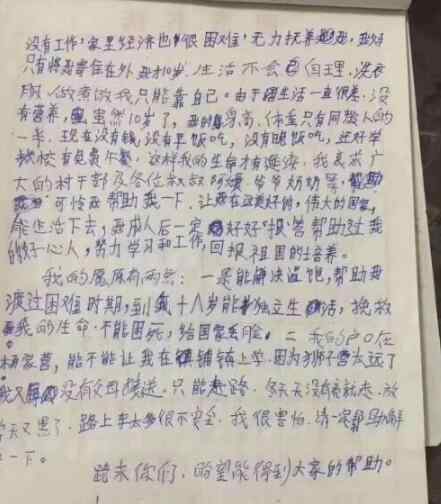 没有工作,家里经济也很困难,无力抚养我,我妈
只有将我寄住在外,我才10岁,生活不会自理,洗衣
服,做煮做我只能靠自己。由于生活一直很差,没
有营养,虽然10岁了,我的身高,体重只有同龄人的
一半.现在没有钱,没有早饭吃,没有晚饭吃,还好学
校有免费午餐,这样我的生命才有延续.我恳求广
大的村干部及各位叔叔阿姨、爷爷奶奶等,帮助
可怜我帮助我一下.让我在这美好的,伟大的国家,
能生活下去,我成人后一定好好报答帮助过我
的好心人,努力学习和工作,回报祖国的培养。
我的愿原有两点:一是能解决温饱,帮助我
渡过困难时期,到我十八岁能够独立生活,挽救
我的生命.不能困死,给国家丢脸.二我的户口在
杨家营,能不能让我在镇铺镇上学.因为狮子营太远了
我又没有父母接送.只能走路.冬天没有亮就走.放
学天又黑了.路上车太多很不安全.我很害怕.请求帮助解
一下。
跪求你们,盼望能得到大家的帮助。